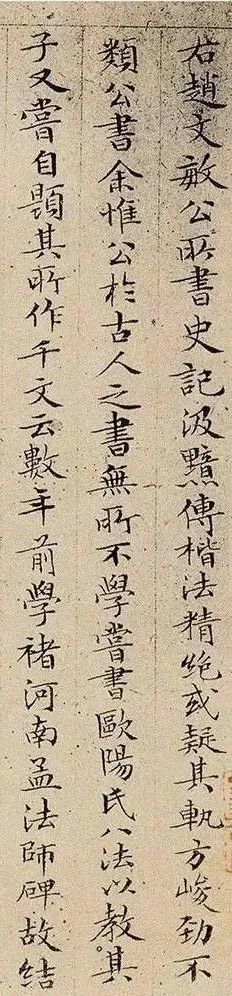 右趙文敏公所書史記汲黯傳楷法精絶或疑其軌方峻勁不
類公書余惟公於古人之書無所不學嘗書歐陽氏八法以教其
子又嘗自題其所作千文云數年前學褚河南孟法師碑故結